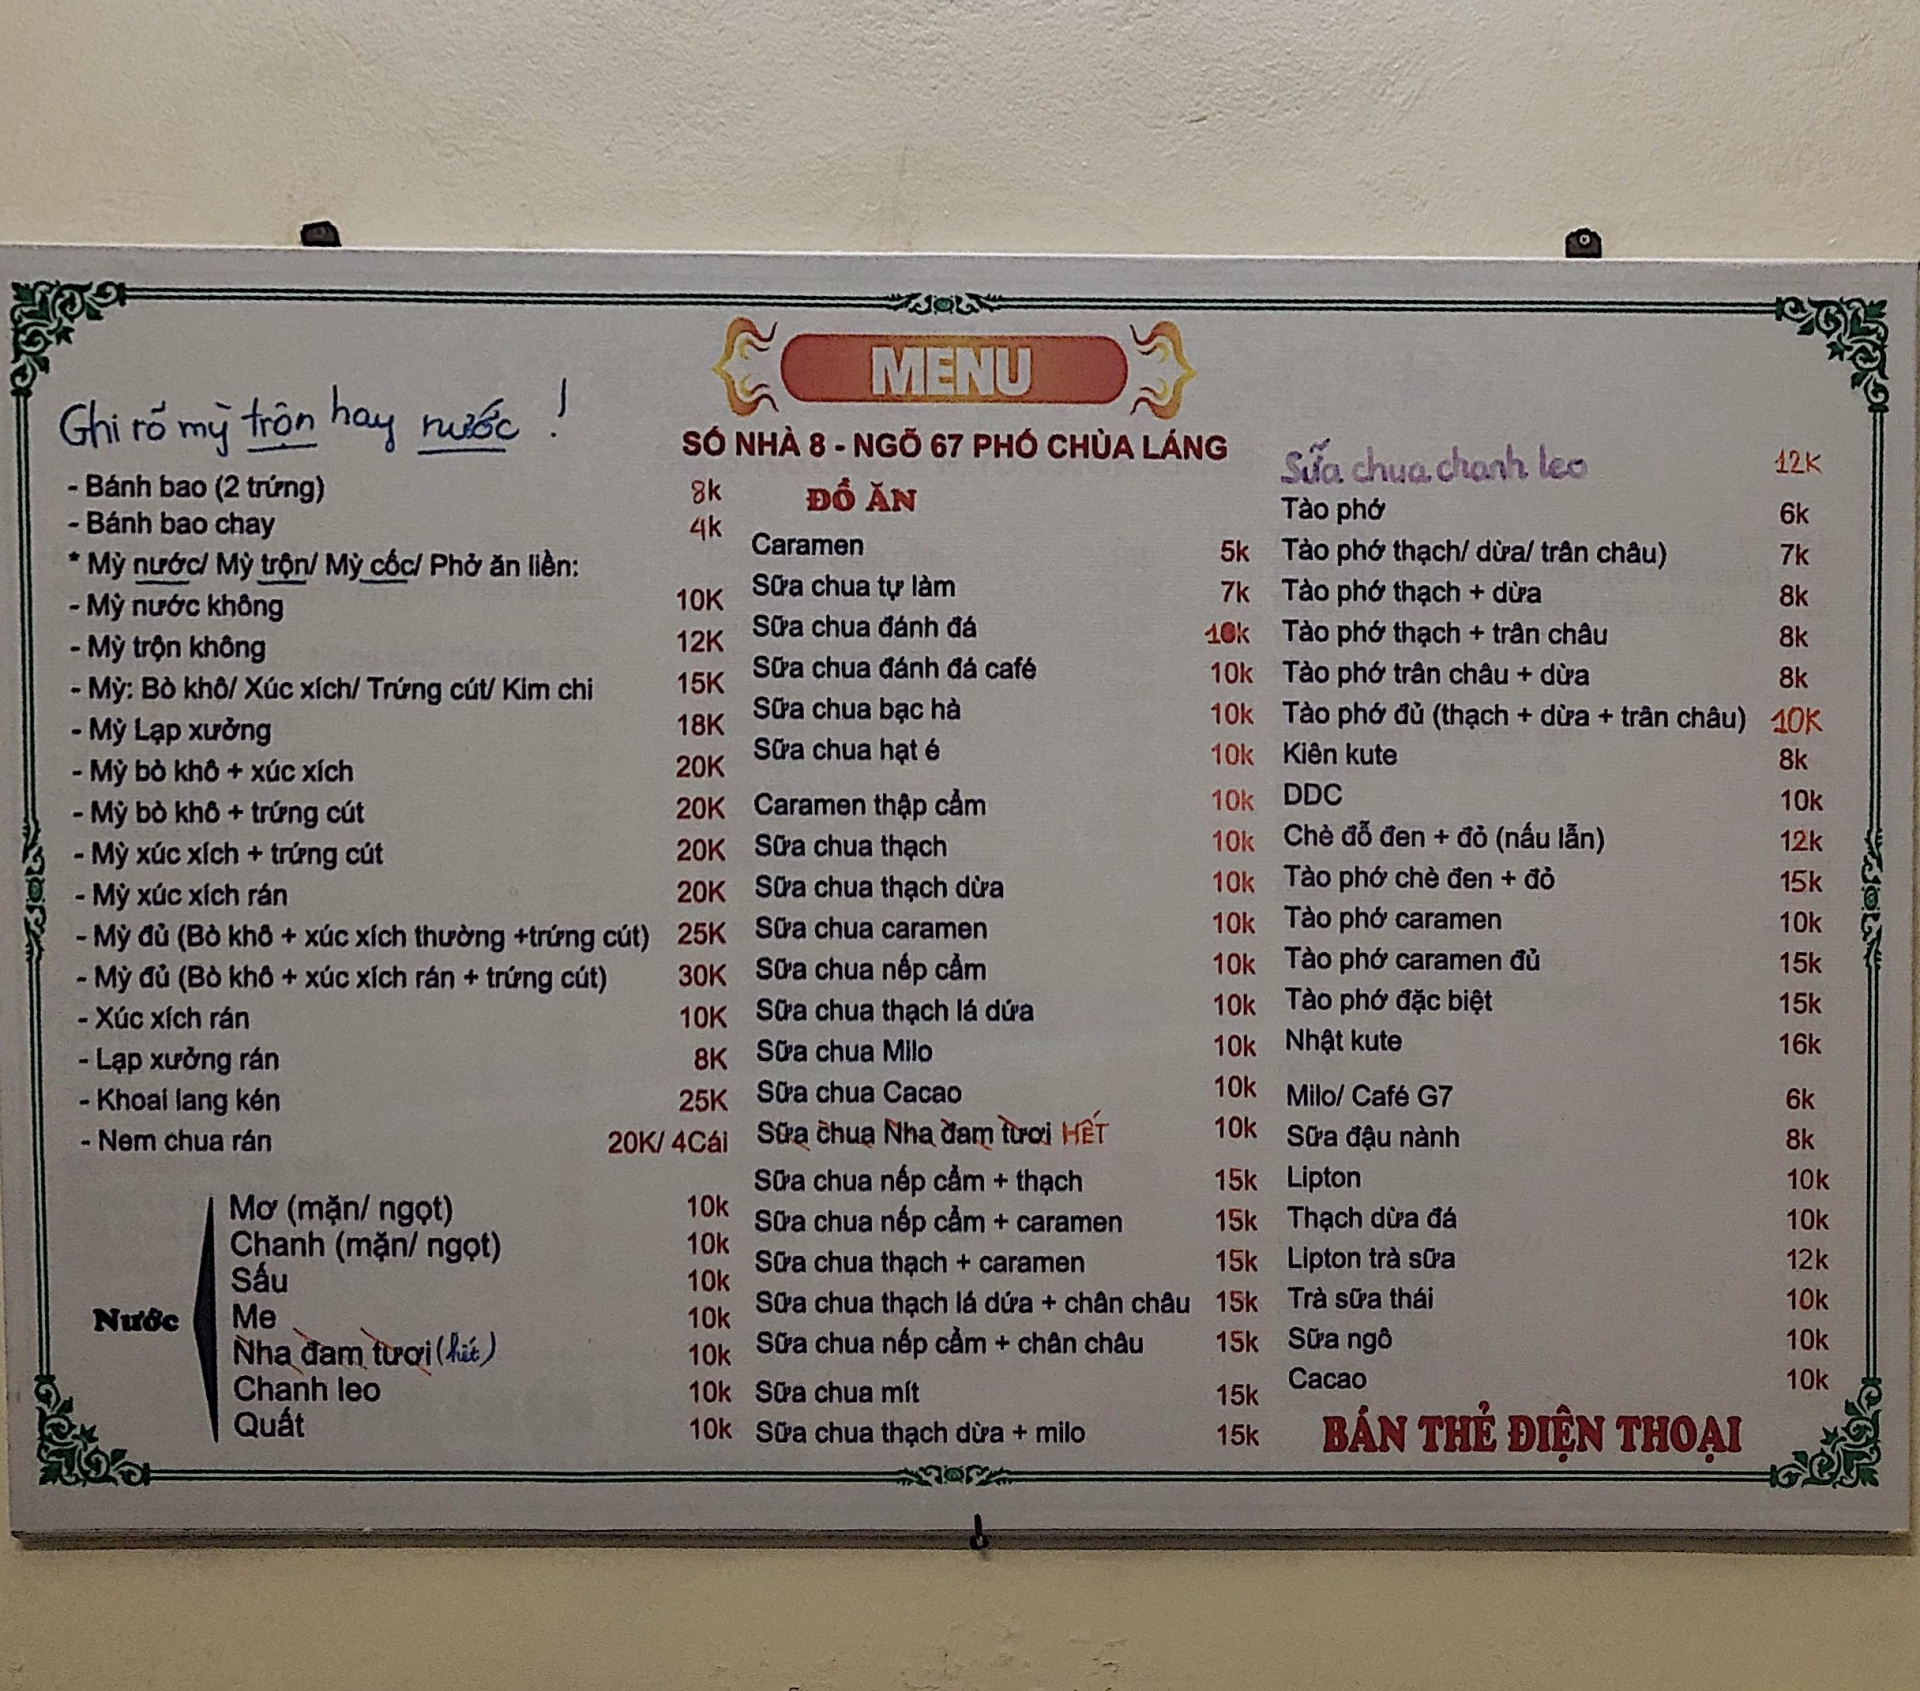 MENU
SỐ NHÀ 8 - NGÕ 67 PHỐ CHÙA LÁNG
Ghi rõ mỳ trộn hay nước !
- Bánh bao (2 trứng) 8k
- Bánh bao chay 4k
* Mỳ nước/ Mỳ trộn/ Mỳ cốc/ Phở ăn liền:
- Mỳ nước không 10K
- Mỳ trộn không 12K
- Mỳ: Bò khô/ Xúc xích/ Trứng cút/ Kim chi 15K
- Mỳ Lạp xưởng 18K
- Mỳ bò khô + xúc xích 20K
- Mỳ bò khô + trứng cút 20K
- Mỳ xúc xích + trứng cút 20K
- Mỳ xúc xích rán 20K
- Mỳ đủ (Bò khô + xúc xích thường +trứng cút) 25K
- Mỳ đủ (Bò khô + xúc xích rán + trứng cút) 30K
- Xúc xích rán 10K
- Lạp xưởng rán 8K
- Khoai lang kén 25K
- Nem chua rán 20K/ 4Cái
Nước
Mơ (mặn/ ngọt) 10k
Chanh (mặn/ ngọt) 10k
Sấu 10k
Me 10k
Nha đam tươi (hết) 10k
Chanh leo 10k
Quất 10k
ĐỒ ĂN
Caramen 5k
Sữa chua tự làm 7k
Sữa chua đánh đá 10k
Sữa chua đánh đá café 10k
Sữa chua bạc hà 10k
Sữa chua hạt é 10k
Caramen thập cẩm 10k
Sữa chua thạch 10k
Sữa chua thạch dừa 10k
Sữa chua caramen 10k
Sữa chua nếp cẩm 10k
Sữa chua thạch lá dứa 10k
Sữa chua Milo 10k
Sữa chua Cacao 10k
Sữa chua Nha đam tươi HẾT 10k
Sữa chua nếp cẩm + thạch 15k
Sữa chua nếp cẩm + caramen 15k
Sữa chua thạch + caramen 15k
Sữa chua thạch lá dứa + chân châu 15k
Sữa chua nếp cẩm + chân châu 15k
Sữa chua mít 15k
Sữa chua thạch dừa + milo 15k
Sữa chua chanh leo 12K
Tào phớ 6k
Tào phớ thạch/ dừa/ trân châu) 7k
Tào phớ thạch + dừa 8k
Tào phớ thạch + trân châu 8k
Tào phớ trân châu + dừa 8k
Tào phớ đủ (thạch + dừa + trân châu) 10K
Kiên kute 8k
DDC 10k
Chè đỗ đen + đỏ (nấu lẫn) 12k
Tào phớ chè đen + đỏ 15k
Tào phớ caramen 10k
Tào phớ caramen đủ 15k
Tào phớ đặc biệt 15k
Nhật kute 16k
Milo/ Café G7 6k
Sữa đậu nành 8k
Lipton 10k
Thạch dừa đá 10k
Lipton trà sữa 12k
Trà sữa thái 10k
Sữa ngô 10k
Cacao 10k
BÁN THẺ ĐIỆN THOẠI